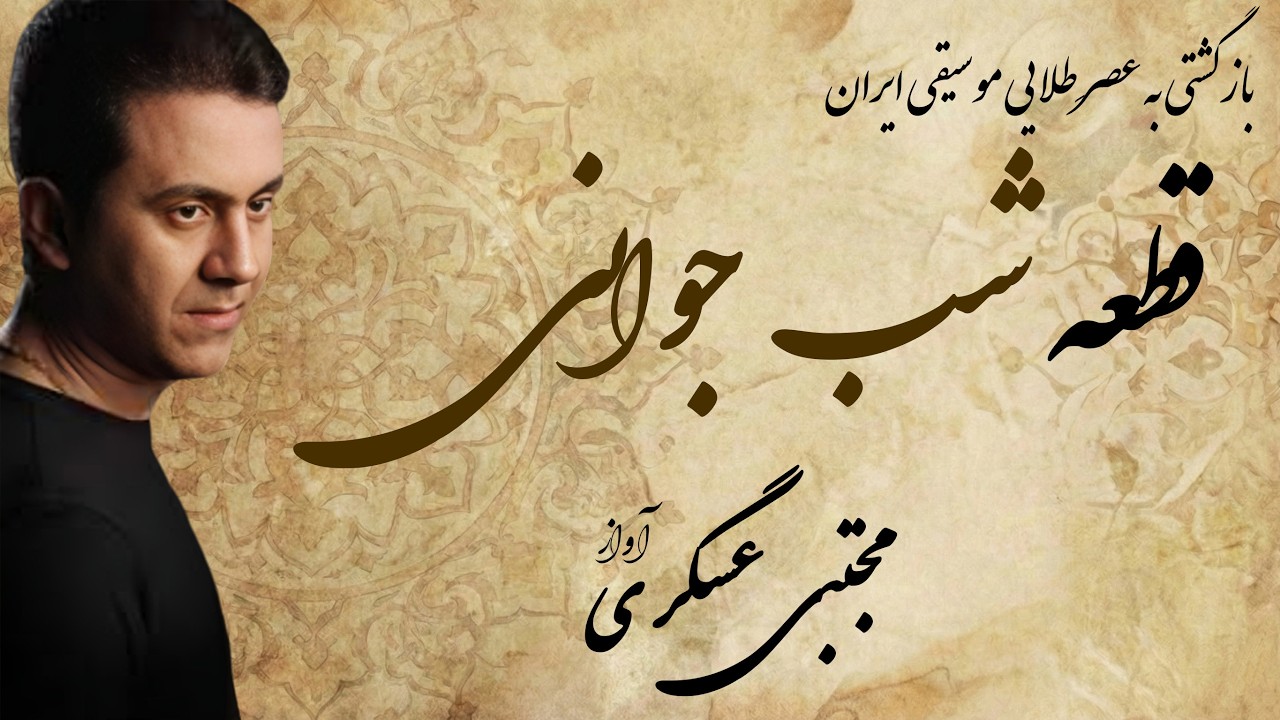 بازگشتی به عصر طلایی موسیقی ایران
قطعه شب جوانی
آواز
مجتبی عسگری